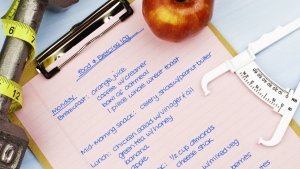 Food & Exercise Log
Monday
Breakfast: orange juice
coffee w/creamer
bowl of oatmeal
1 piece whole wheat toast
Mid-Morning Snack: celery sticks w/peanut butter
Lunch: chicken salad w/vinegar & oil
green tea w/honey
banana
apple
1/2 cup almonds
cheese stick
w/mixed veg